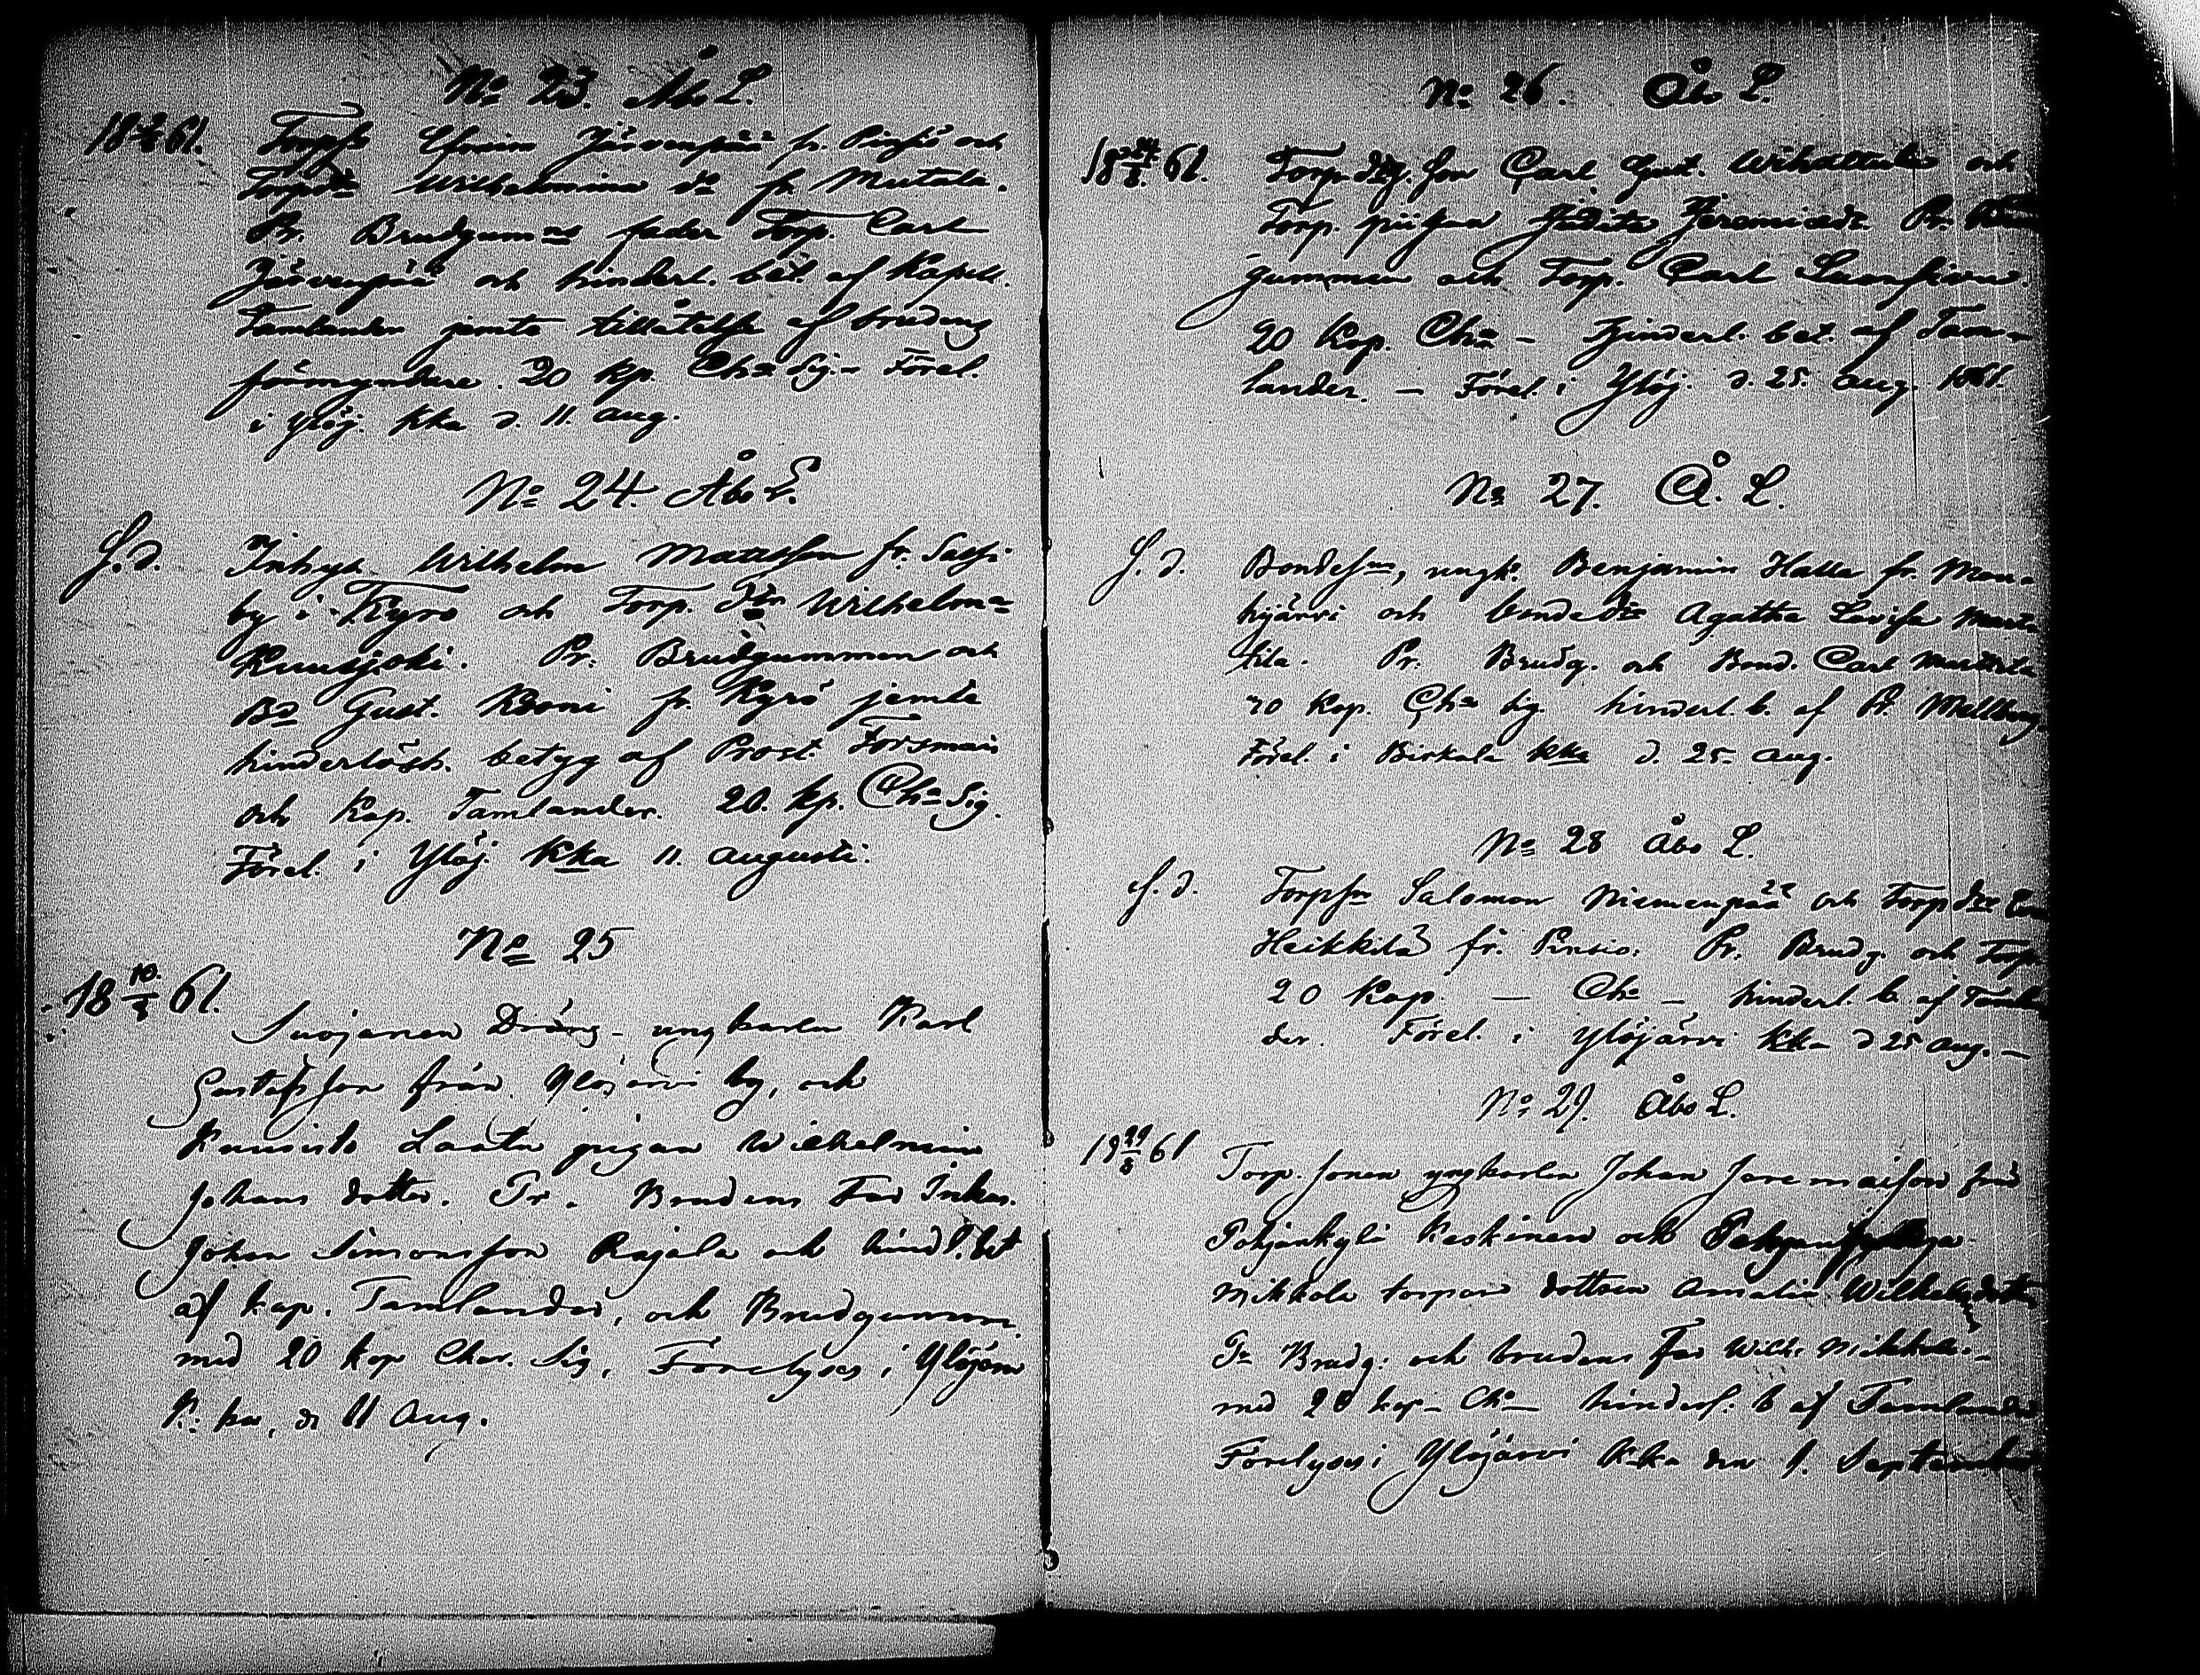 No 23. Åbo L.
18 61. Torps Efraim Järvenpää fr. och
Torpdr Wilhelmina dr fr Mutala.
Pr. Brudgummens fader Torp. Carl
Järvenpää och hinderl. bet. af Kapell.
Tamlander jemte tillåtelse af brudens
förmyndare. 20 kp. Cha Sig. – Förel.
i Ylöj. kka d. 11. aug.
No 24. Åbo L.
S. d. Inhys. Wilhelm Mattsson fr. Sassi
by i Kyro och Torp. dtr Wilhelma
Kuusjoki. Pr. Brudgummen och
Bd Gust. fr. Kyrö jemte
hinderlösh. betyg af Prost Forsman
och Kap. Tamlander. 20. kp. Cha Sig.
Förel. i Ylöj. Kka 11. augusti.
No 25
18 10/8 61.
Suojanen Dräng- ungkarlen Karl
Gustafsson från Ylöjärvi by, och
Kuusisto pigan Wilhelmina
Johans dotter. Pr. Brudens Far Inhys.
Johan Simonsson Rajala och hindl. bet
af kap. Tamlander, och Brudgumm.
med 20 kop Char. Sig. Förelyses i Ylöjärvi
K: ka, d 11 Aug.
No 26. Åbo L.
18 24/8 61. Torp. drg. son Carl Gust. och
Torp. pigan Judita Jeremiedr. Pr. Brud
gummen och Torp. Carl
20 Kop. Cha – Hinderl. bet. af Tam-
lander. – Förel. i Ylöj. d. 25. aug. 1861.
No 27. Å. L.
S. d. Bondesn, ungk. Benjamin Halla fr. Mou-
hijärvi och bondedtr Agatha Lovisa Mart-
tila. Pr. Brudg. och Bond. Carl Marttila
20 Kop. Cha Sig. hinderl. b. af Pr. Mellberg.
Förel. i Birkala kka d. 25. aug.
No 28 Åbo L.
S. d. Torpsn Salomon Niemenpää och Torpdtr
Heikkilä fr. Pinsiö. Pr. Brudg. och Torp.
20 Kop. – Cha – hinderl. b. af Tamlan
der. Förel. i Ylöjärvi kka d 25 aug. –
No 29. Åbo L.
19 29/8 61 Torp. sonen ungkarlen Johan Jeremiaison från
Pohjankylä Keskinen och
Mikkola torpare dottren Amalia Wilhelmsdotter
Pr Brudg. och brudens Far Wilh. Mikkola. –
med 20 kop – Cha – hinderl. b af Tamlander
Förelyses i Ylöjärvi K-ka den 1. September